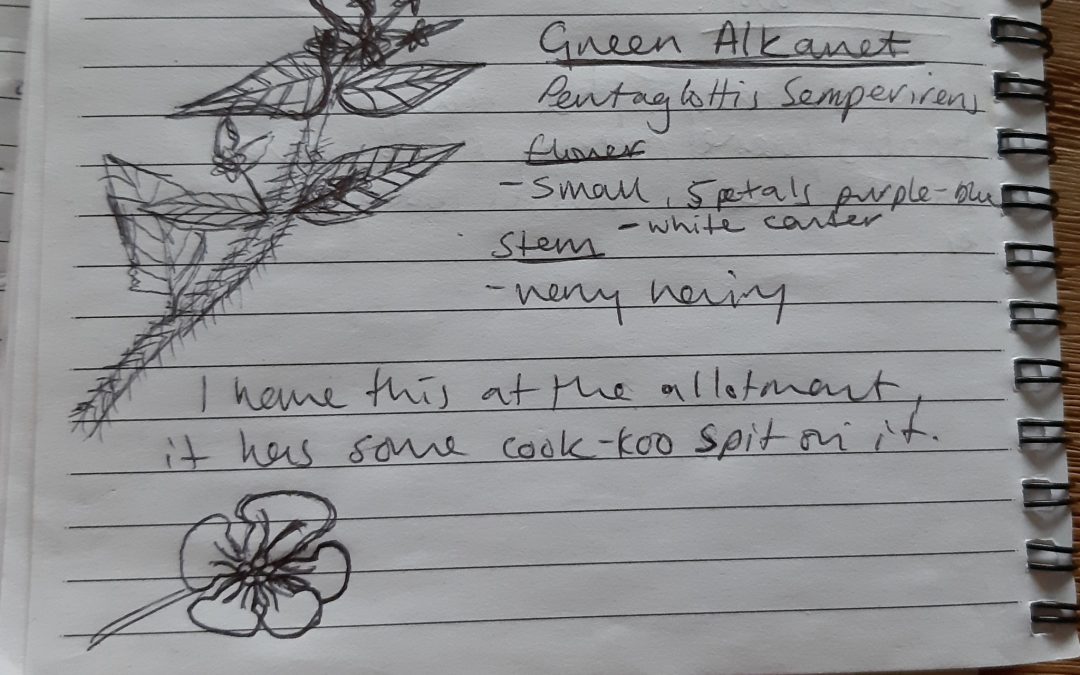 Green Alkanet
Pentaglottis Sempervirens
flower
- Small, 5 petals purple-blue
- white center
Stem
- very hairy
I have this at the allotment,
it has some cook-koo spit on it.